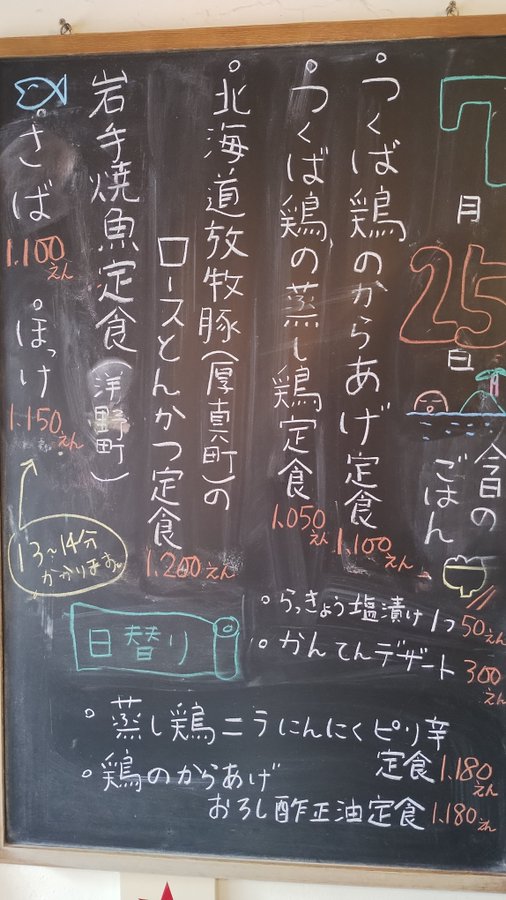 7
月
25
日
今日の
ごはん
。つくば鶏のからあげ定食
1.100えん
。つくば鶏の蒸し鶏定食
1.050えん
。北海道放牧豚(厚真町)の
ロースとんかつ定食
1.200えん
岩手焼魚定食(洋野町)
。さば
1.100えん
。ほっけ
1.150えん
13〜14分
かかります。
。らっきょう塩漬け1つ50えん
。かんてんデザート300えん
日替り
。蒸し鶏ニラにんにくピリ辛
定食1.180えん
。鶏のからあげ
おろし酢正油定食1.180えん